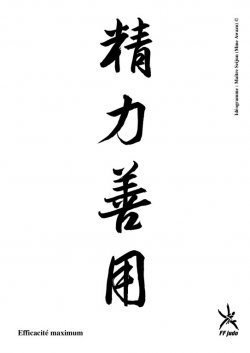 精力善用
Idéogramme : Maître Sejun (Mine Awazu) ©
Efficacité maximum
FF Judo